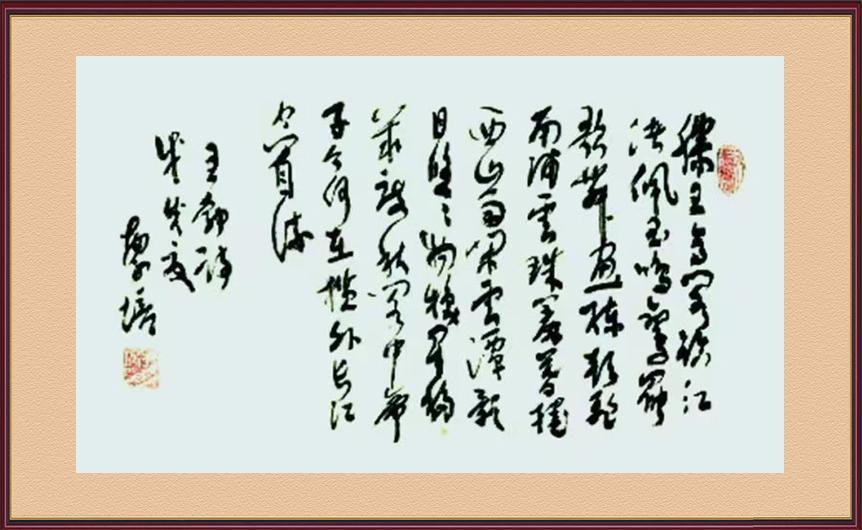 滕王高阁临江
渚佩玉鸣鸾罢
歌舞画栋朝飞
南浦雲珠簾暮捲
西山雨闲雲潭影
日悠々物换星移
几度秋阁中帝
子今何在槛外长江
空自流
王勃诗
戊戌夏